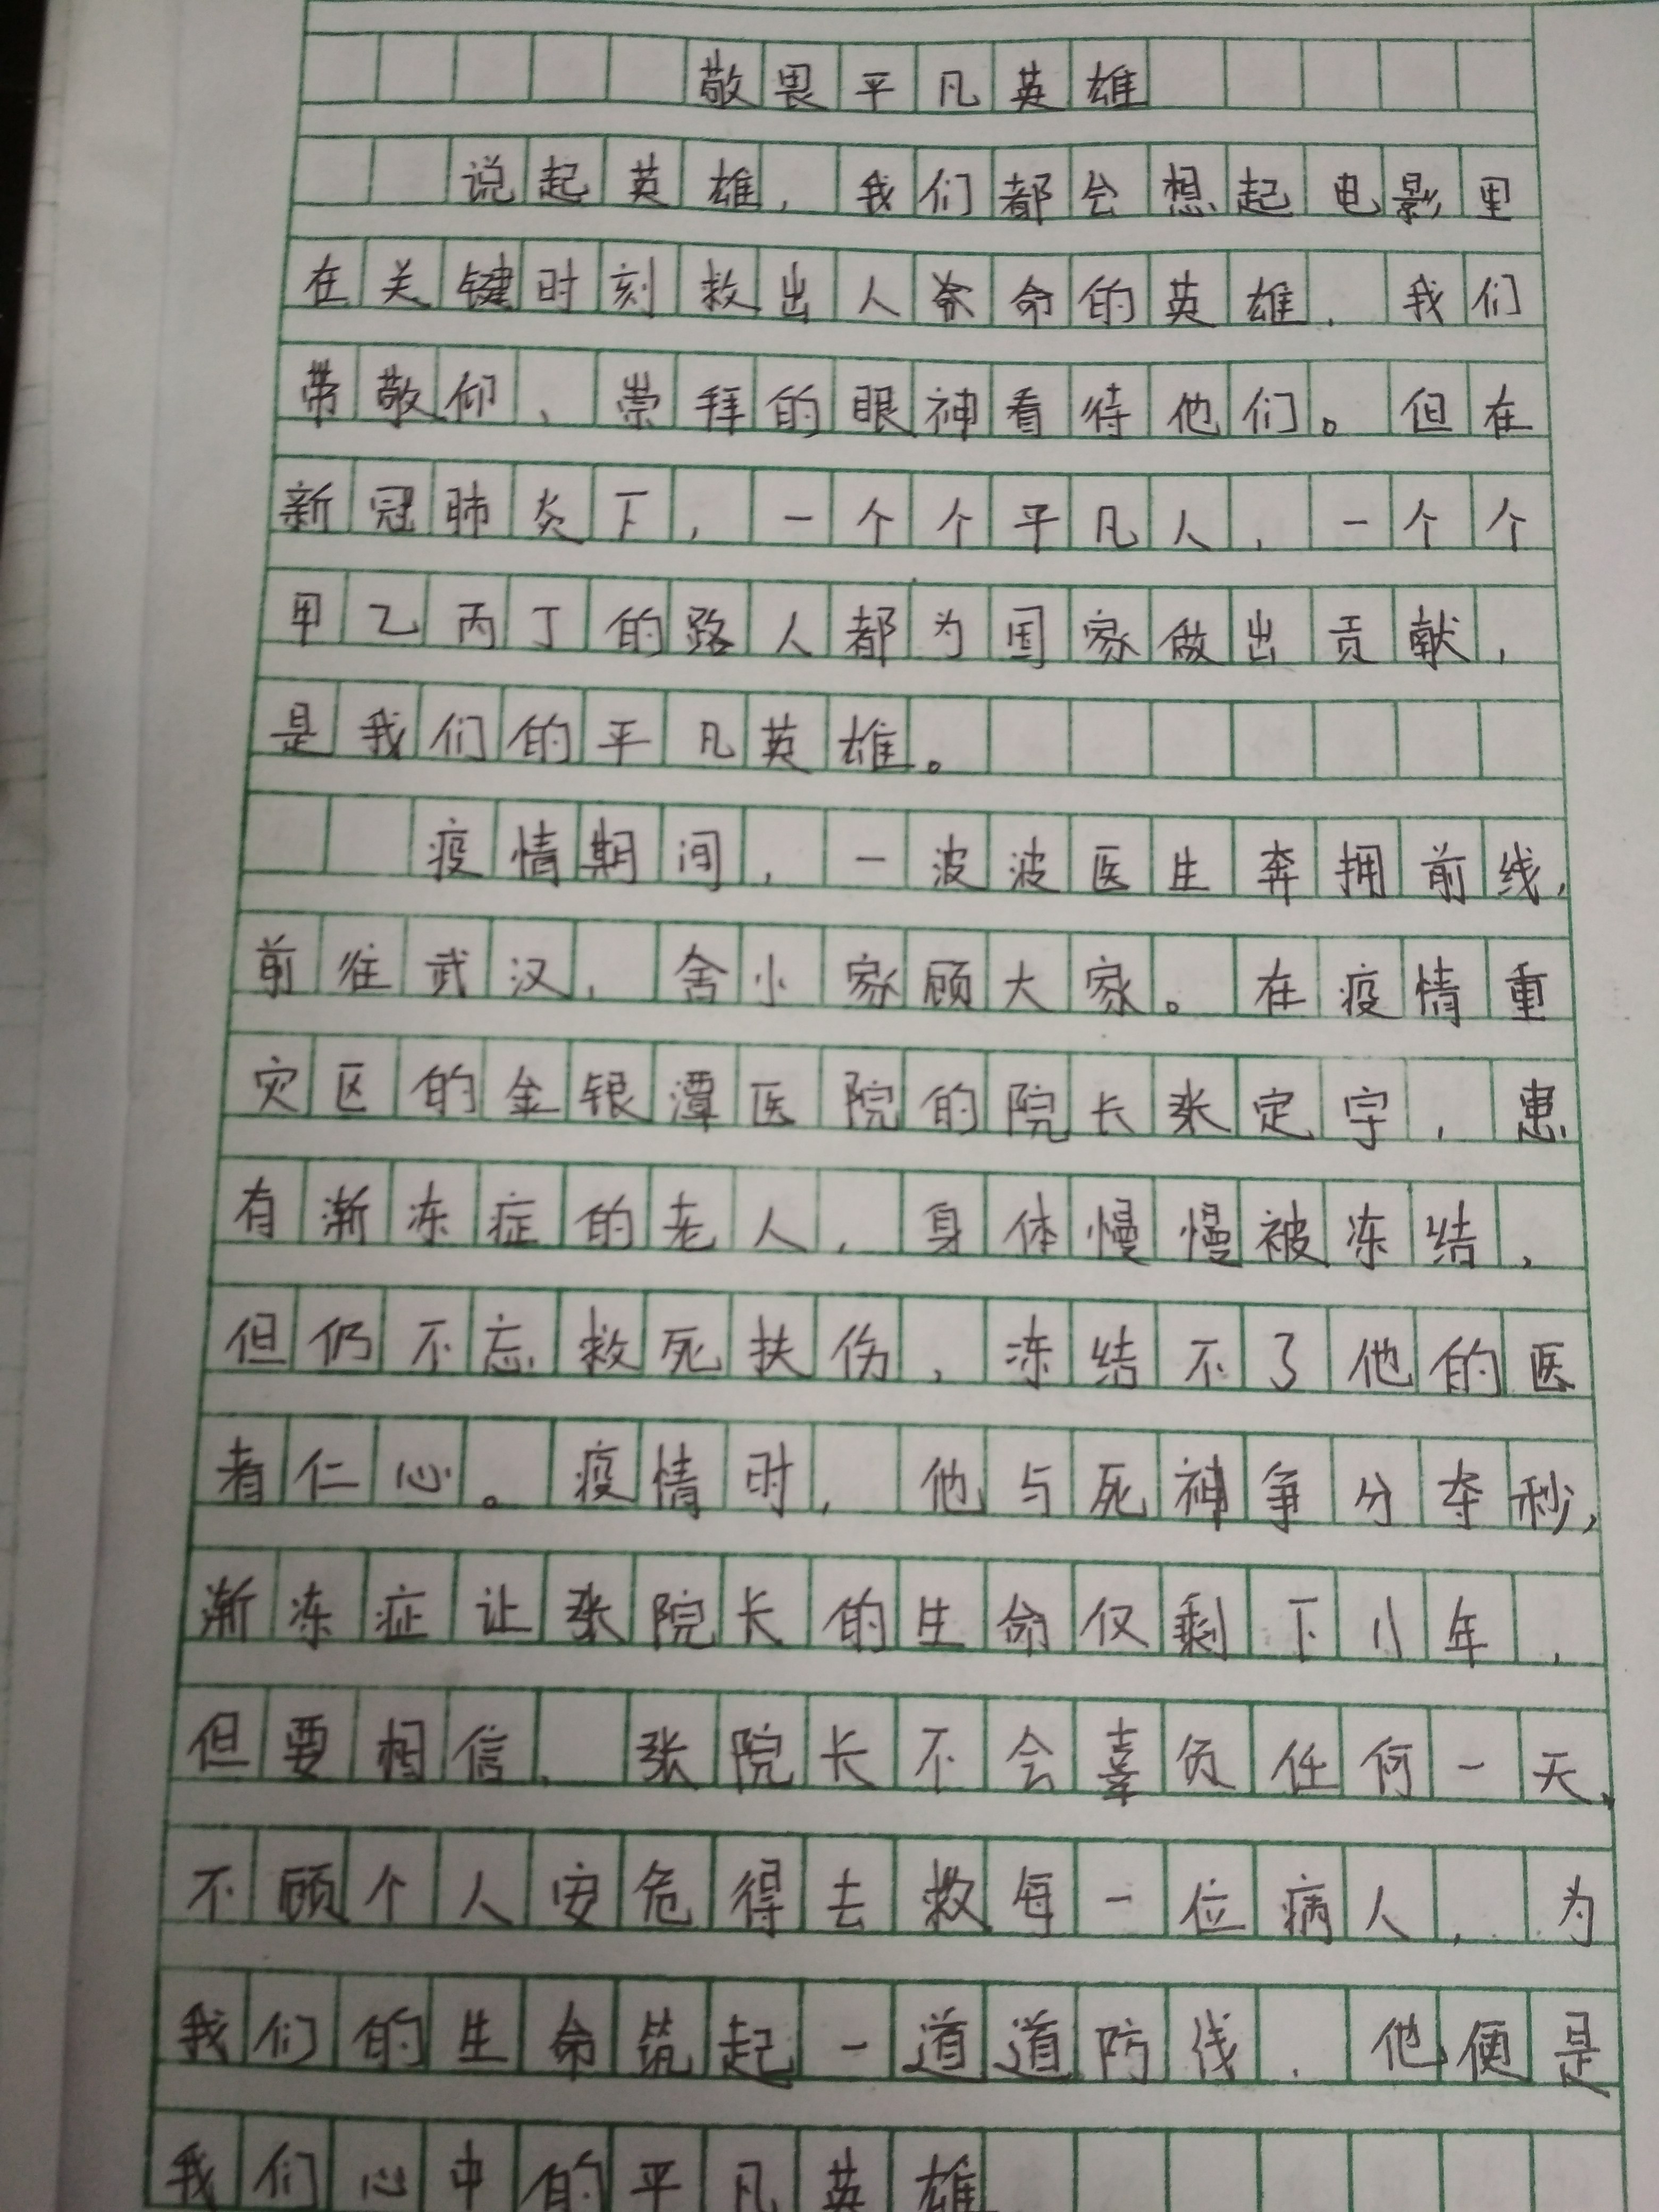 敬畏平凡英雄
说起英雄，我们都会想起电影里
在关键时刻救出人命的英雄，我们
带敬仰、崇拜的眼神看待他们。但在
新冠肺炎下，一个个平凡人，一个个
甲乙丙丁的路人都为国家做出贡献，
是我们的平凡英雄。
疫情期间，一波波医生奔拥前线，
前往武汉，舍小家顾大家。在疫情重
灾区的金银潭医院的院长张定宇，患
有渐冻症的老人，身体慢慢被冻结，
但仍不忘救死扶伤，冻结不了他的医
者仁心。疫情时，他与死神争分夺秒，
渐冻症让张院长的生命仅剩下八年，
但要相信，张院长不会辜负任何一天，
不顾个人安危得去救每一位病人，为
我们的生命筑起一道道防线，他便是
我们心中的平凡英雄